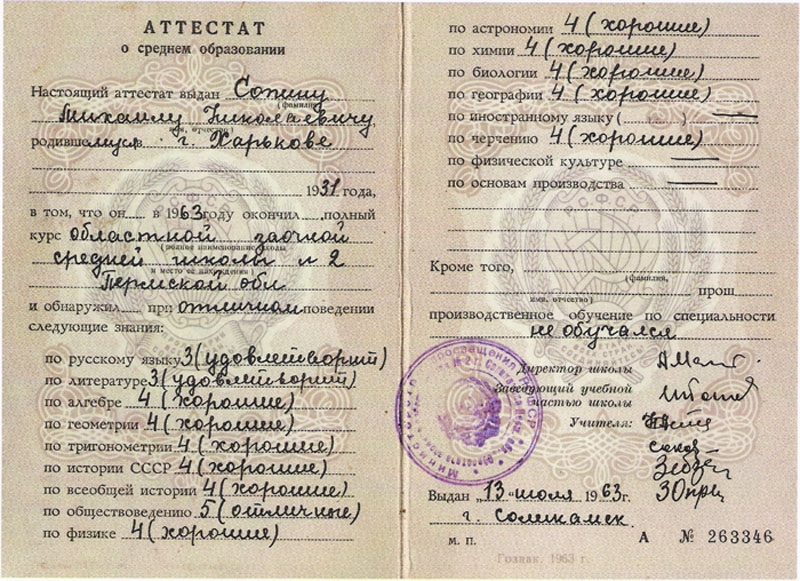 АТТЕСТАТ
о среднем образовании
Настоящий аттестат выдан Сопину
(фамилия,
Михаилу Николаевичу
имя, отчество)
родившемуся в г. Харькове
1931 года,
в том, что он в 1963 году окончил полный
курс областной заочной
(полное наименование школы
средней школы № 2
и место ее нахождения)
Пермской обл
и обнаружил при отличном поведении
следующие знания:
по русскому языку 3 (удовлетворит)
по литературе 3 (удовлетворит)
по алгебре 4 (хорошие)
по геометрии 4 (хорошие)
по тригонометрии 4 (хорошие)
по истории СССР 4 (хорошие)
по всеобщей истории 4 (хорошие)
по обществоведению 5 (отличные)
по физике 4 (хорошие)
по астрономии 4 (хорошие)
по химии 4 (хорошие)
по биологии 4 (хорошие)
по географии 4 (хорошие)
по иностранному языку ( ) —
по черчению 4 (хорошие)
по физической культуре —
по основам производства —
Кроме того,
(фамилия,
прош
имя, отчество)
производственное обучение по специальности
не обучался
Директор школы
Заведующий учебной
частью школы
Учителя:
Выдан „13“ июля 1963 г.
г. Соликамск.
м. п. А № 263346
Гознак. 1963 г.